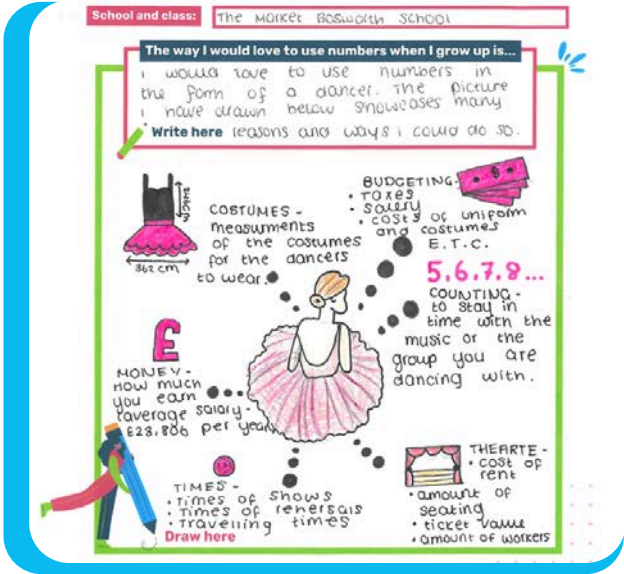 School and class:
The Market Bosworth School
The way I would love to use numbers when I grow up is...
i would love to use numbers in
the form of a dancer. The picture
i have drawn below showcases many
Write here reasons and ways i could do so.
COSTUMES -
measurments
of the costumes
for the dancers
to wear.
362 cm
BUDGETING-
• Taxes
• salery
• costs of uniform
and costumes
E.T.C.
$
5,6,7,8...
COUNTING -
to stay in
time with the
music or the
group you are
dancing with.
£
MONEY-
How much
you earn
(average salary-
£23,806 per year)
TIMES -
• Times of shows
• Times of rehersals
• Travelling times
THEARTE -
• cost of
rent
• amount of
seating
• ticket value
• amount of workers
Draw here